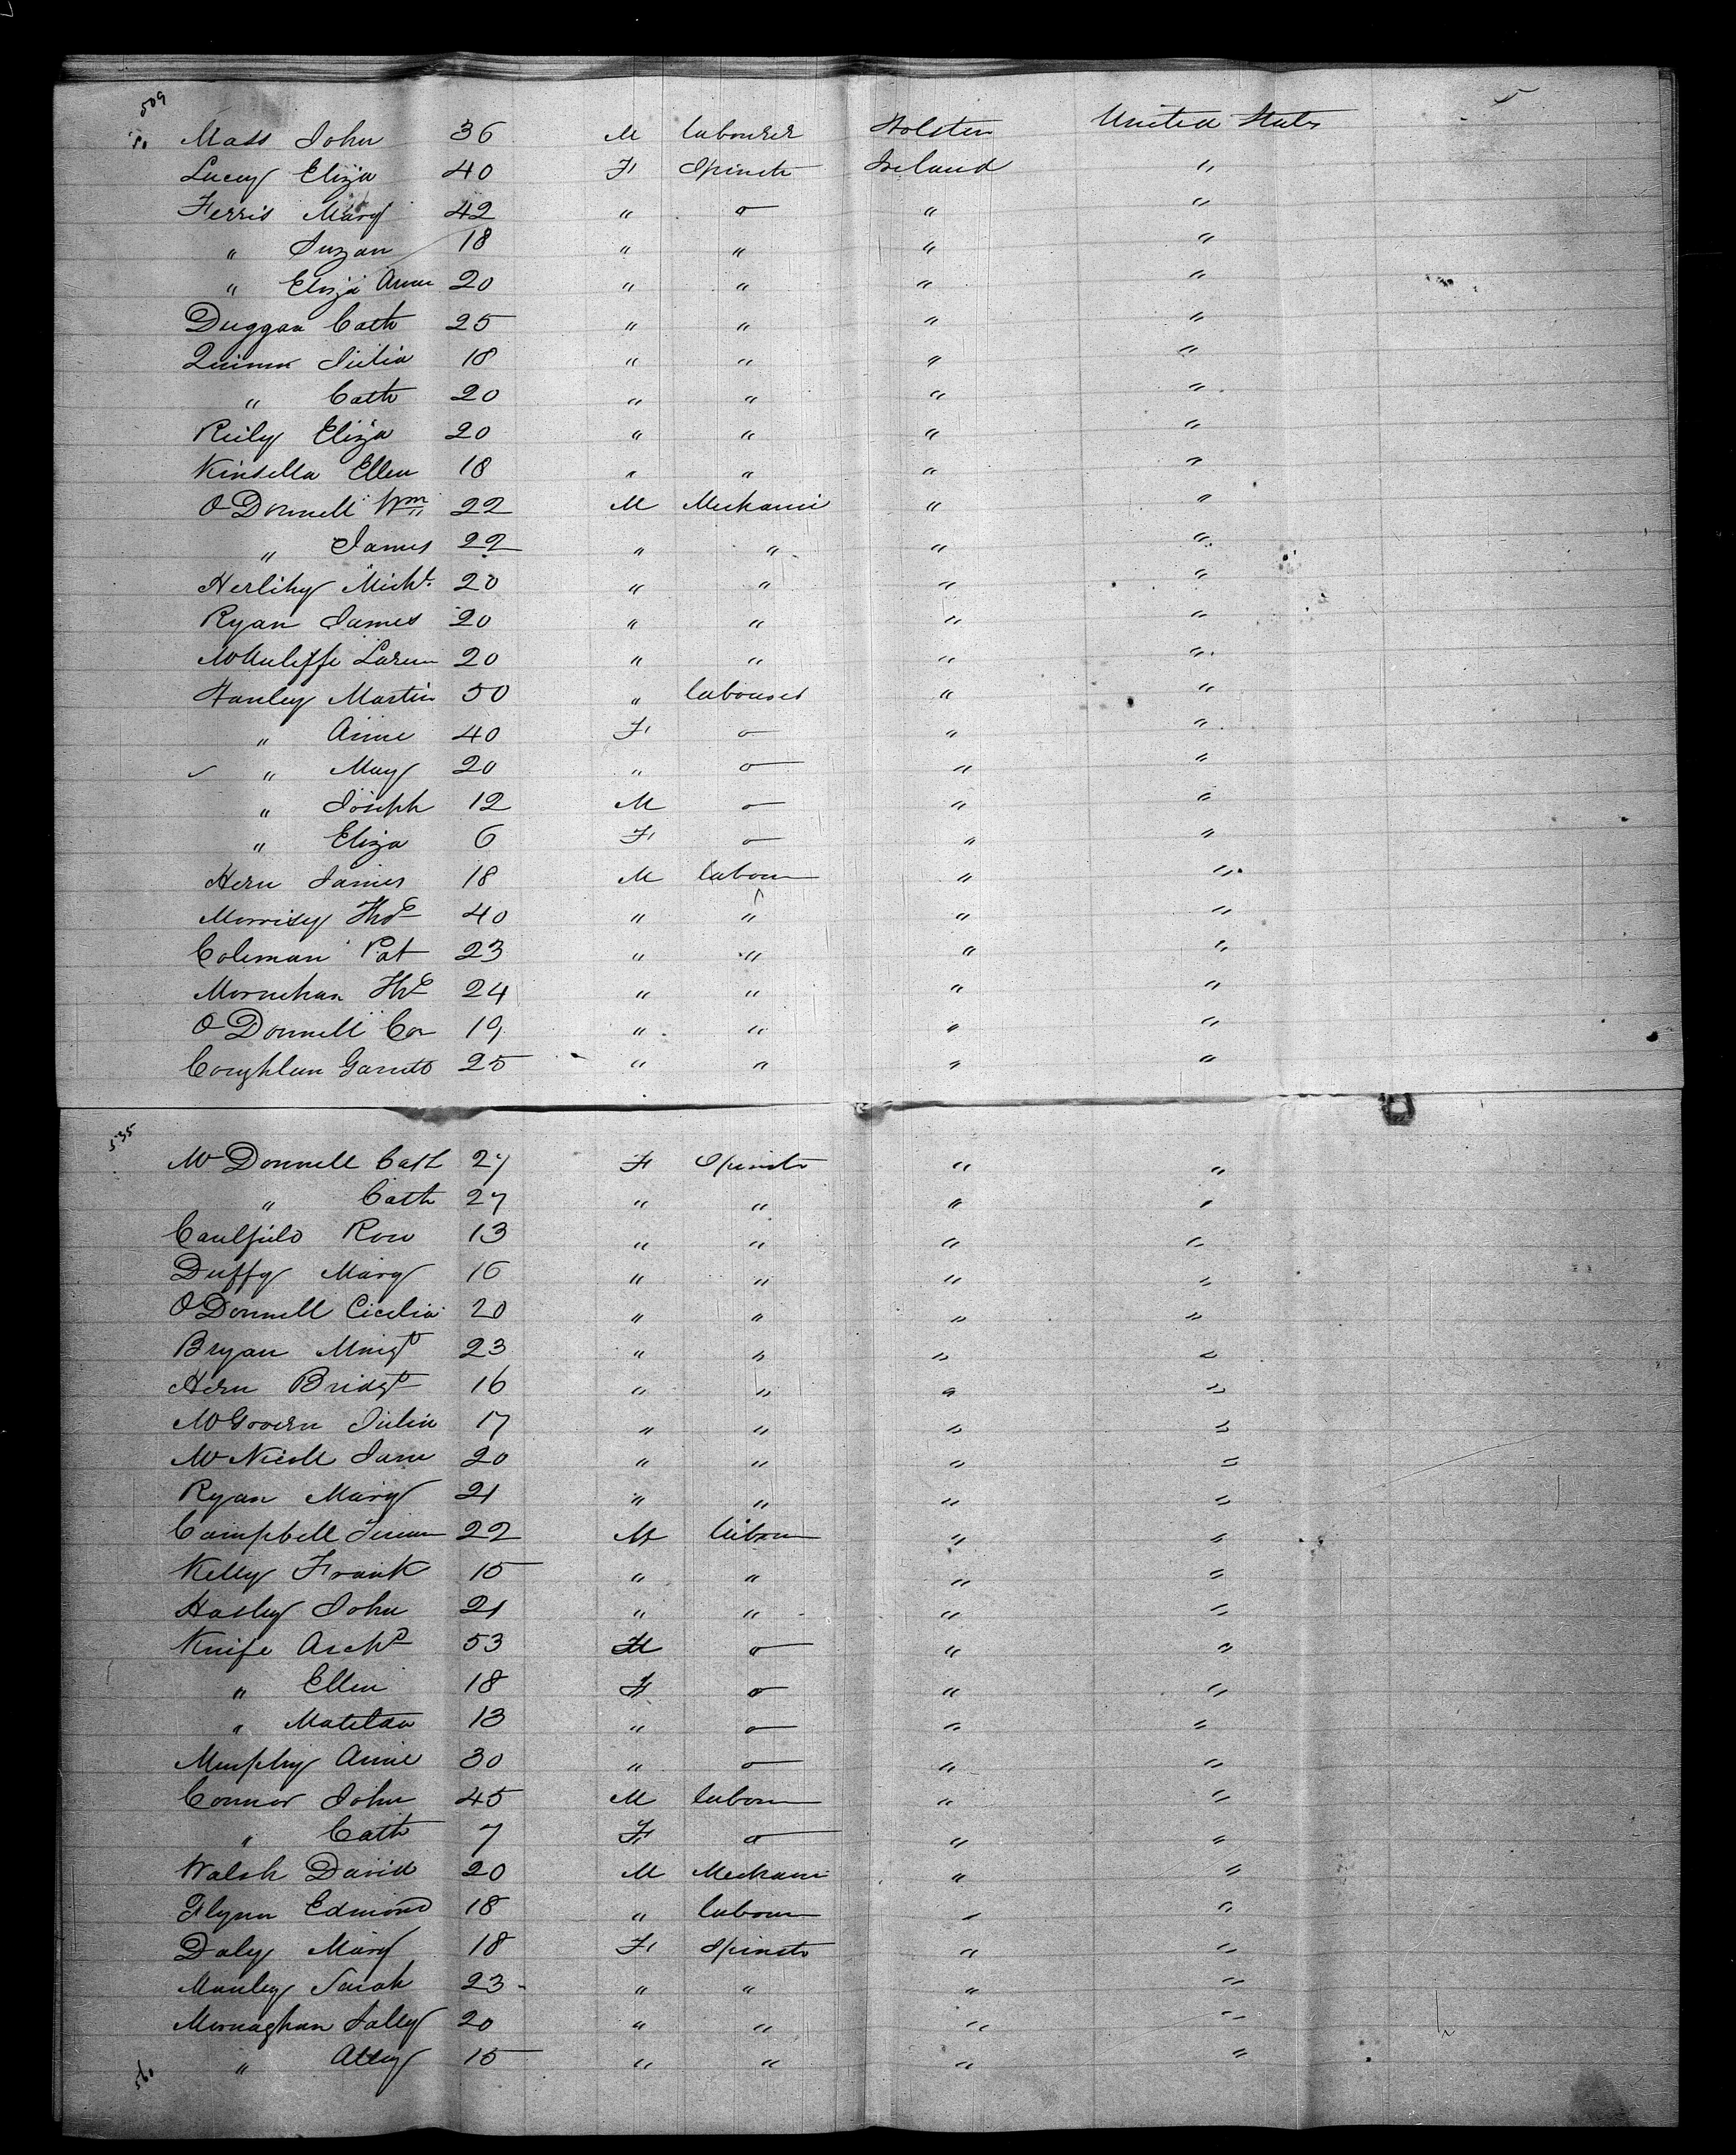 509
Mass John 36 M labourer Holsten United States
Lucey Eliza 40 F Spinstr Ireland "
Ferris Mary 42 " o " "
" Suzan 18 " " " "
" Eliza Anne 20 " " " "
Duggan Cath 25 " " " "
Quinn Julia 18 " " " "
" Cath 20 " " " "
Reily Eliza 20 " " " "
Kinsella Ellen 18 " " " "
O Donnell Wm 22 M Mechanic " "
" James 22 " " " "
Herlihy Michl. 20 " " " "
Ryan James 20 " " " "
McAuliffe 20 " " " "
Hanley Martin 50 " labourer " "
" Anne 40 F o " "
" Mary 20 " o " "
" Joseph 12 M o " "
" Eliza 6 F o " "
Hern James 18 M labour " "
Morrisy Thos 40 " " " "
Coleman Pat 23 " " " "
Thos 24 " " " "
O Donnell Cor 19 " " " "
Coughlan Garrett 25 " " " "
535
Mc Donnell Cath 27 F Spinstr " "
" Cath 27 " " " "
Caulfield Rose 13 " " " "
Duffy Mary 16 " " " "
O Donnell Cicelia 20 " " " "
Bryan Margt 23 " " " "
Hern Bridgt 16 " " " "
McGovern Julia 17 " " " "
Mc Nicoll Jane 20 " " " "
Ryan Mary 21 " " " "
Campbell 22 M labour " "
Kelly Frank 15 " " " "
Hasley John 21 " " " "
Knife Archd 53 M o " "
" Ellen 18 F o " "
" Matilda 13 " o " "
Murphy Anne 30 " o " "
Connor John 45 M labour " "
" Cath 7 F o " "
Walsh David 20 M Mechani " "
Flynn Edmond 18 " labour " "
Daly Mary 18 F Spinstr " "
Manley Sarah 23 " " " "
Monaghan Sally 20 " " " "
" Alley 15 " " " "
560